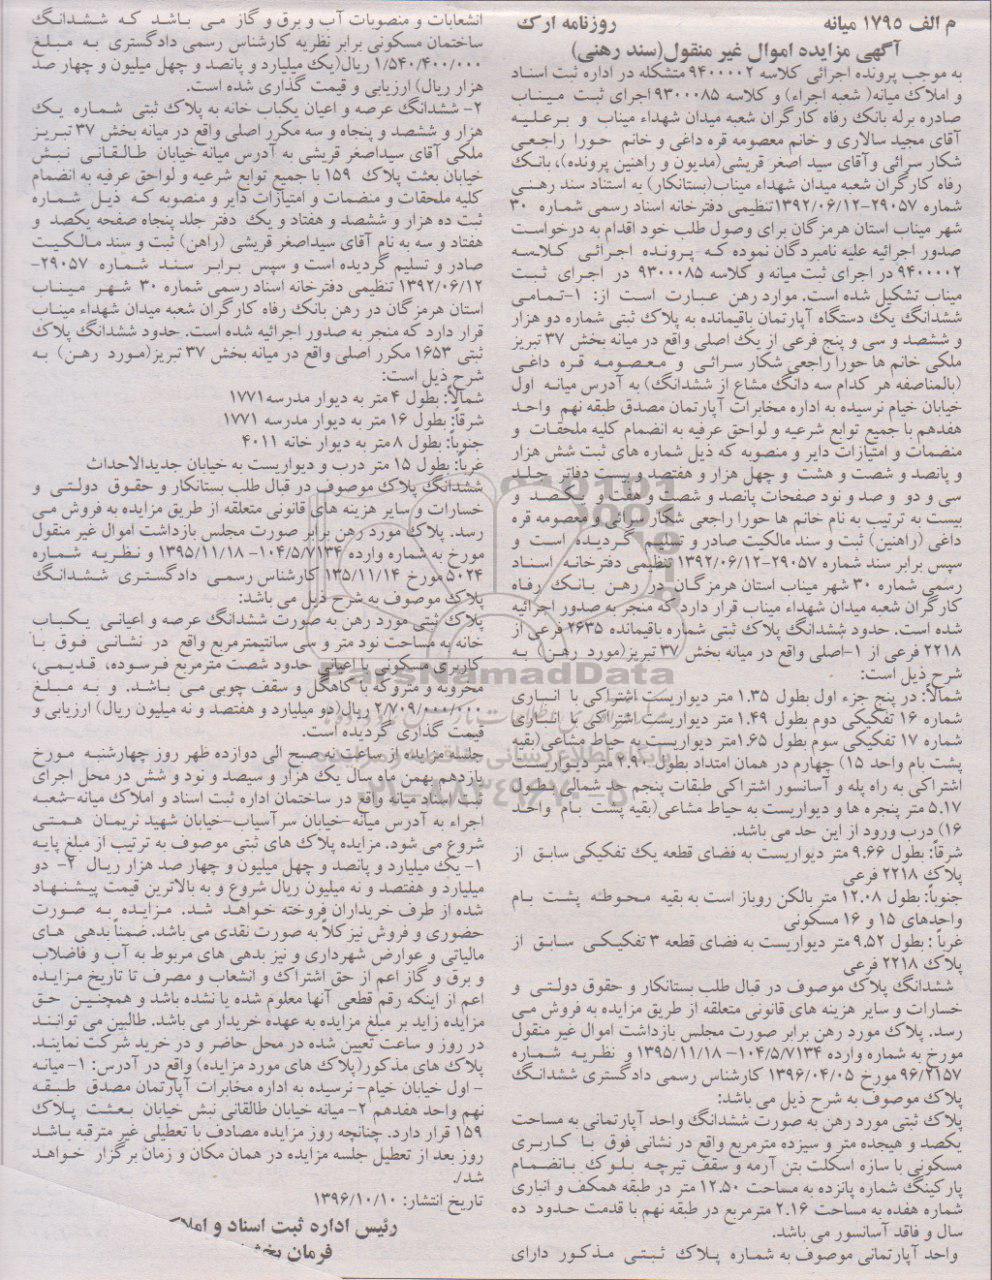 م الف ۱۷۹۵ میانه روزنامه ارک
آگهی مزایده اموال غیر منقول(سند رهنی)
به موجب پرونده اجرائی کلاسه ۹۴۰۰۰۰۲ متشکله در اداره ثبت اسناد
و املاک میانه( شعبه اجراء) و کلاسه ۹۳۰۰۰۸۵ اجرای ثبت میناب
صادره برله بانک رفاه کارگران شعبه میدان شهداء میناب و برعلیه
آقای مجید سالاری و خانم معصومه قره داغی و خانم حورا راجعی
شکار سرائی و آقای سید اصغر قریشی(مدیون و راهنین پرونده)، بانک
رفاه کارگران شعبه میدان شهداء میناب(بستانکار) به استناد سند رهنی
شماره ۲۹۰۵۷-۱۳۹۲/۰۶/۱۲ تنظیمی دفترخانه اسناد رسمی شماره ۳۰
شهر میناب استان هرمزگان برای وصول طلب خود اقدام به درخواست
صدور اجرائیه علیه نامبردگان نموده که پرونده اجرائی کلاسه
۹۴۰۰۰۰۲ در اجرای ثبت میانه و کلاسه ۹۳۰۰۰۸۵ در اجرای ثبت
میناب تشکیل شده است. موارد رهن عبارت است از: ۱-تمامی
ششدانگ یک دستگاه آپارتمان باقیمانده به پلاک ثبتی شماره دو هزار
و ششصد و سی و پنج فرعی از یک اصلی واقع در میانه بخش ۳۷ تبریز
ملکی خانم ها حورا راجعی شکار سرائی و معصومه قره داغی
(بالمناصفه هر کدام سه دانگ مشاع از ششدانگ) به آدرس میانه اول
خیابان خیام نرسیده به اداره مخابرات آپارتمان مصدق طبقه نهم واحد
هفدهم با جمیع توابع شرعیه و لواحق عرفیه به انضمام کلیه ملحقات و
منضمات و امتیازات دایر و منصوبه که ذیل شماره های ثبت شش هزار
و پانصد و شصت و هشت و چهل هزار و هفتصد و بیست دفاتر جلد
سی و دو و صد و نود صفحات پانصد و شصت و هفت و یکصد و
بیست به ترتیب به نام خانم ها حورا راجعی شکار سرائی و معصومه قره
داغی (راهنین) ثبت و سند مالکیت صادر و تسلیم گردیده است و
سپس برابر سند شماره ۲۹۰۵۷-۱۳۹۲/۰۶/۱۲ تنظیمی دفترخانه اسناد
رسمی شماره ۳۰ شهر میناب استان هرمزگان در رهن بانک رفاه
کارگران شعبه میدان شهداء میناب قرار دارد که منجر به صدور اجرائیه
شده است. حدود ششدانگ پلاک ثبتی شماره باقیمانده ۲۶۳۵ فرعی از
۲۲۱۸ فرعی از ۱-اصلی واقع در میانه بخش ۳۷ تبریز(مورد رهن) به
شرح ذیل است:
شمالاً: در پنج جزء اول بطول ۱.۳۵ متر دیواریست اشتراکی با انباری
شماره ۱۶ تفکیکی دوم بطول ۱.۴۹ متر دیواریست اشتراکی با انباری
شماره ۱۷ تفکیکی سوم بطول ۱.۶۵متر دیواریست به حیاط مشاعی(بقیه
پشت بام واحد ۱۵) چهارم در همان امتداد بطول ۲.۹۰ متر دیواریست
اشتراکی به راه پله و آسانسور اشتراکی طبقات پنجم حد شمالی بطول
۵.۱۷ متر پنجره ها و دیواریست به حیاط مشاعی(بقیه پشت بام واحد
۱۶) درب ورود از این حد می باشد.
شرقاً: بطول ۹.۶۶ متر دیواریست به فضای قطعه یک تفکیکی سابق از
پلاک ۲۲۱۸ فرعی
جنوباً: بطول ۱۲.۰۸ متر بالکن روباز است به بقیه محوطه پشت بام
واحدهای ۱۵ و ۱۶ مسکونی
غرباً : بطول ۹.۵۲ متر دیواریست به فضای قطعه ۳ تفکیکی سابق از
پلاک ۲۲۱۸ فرعی
ششدانگ پلاک موصوف در قبال طلب بستانکار و حقوق دولتی و
خسارات و سایر هزینه های قانونی متعلقه از طریق مزایده به فروش می
رسد. پلاک مورد رهن برابر صورت مجلس بازداشت اموال غیر منقول
مورخ به شماره وارده ۱۰۴/۵/۷۱۳۴-۱۳۹۵/۱۱/۱۸ و نظریه شماره
۹۶/۲۱۵۷ مورخ ۱۳۹۶/۰۴/۰۵ کارشناس رسمی دادگستری ششدانگ
پلاک موصوف به شرح ذیل می باشد:
پلاک ثبتی مورد رهن به صورت ششدانگ واحد آپارتمانی به مساحت
یکصد و هیجده متر و سیزده مترمربع واقع در نشانی فوق با کاربری
مسکونی با سازه اسکلت بتن آرمه و سقف تیرچه بلوک بانضمام
پارکینگ شماره پانزده به مساحت ۱۲.۵۰ متر در طبقه همکف و انباری
شماره هفده به مساحت ۲.۱۶ مترمربع در طبقه نهم با قدمت حدود ده
سال و فاقد آسانسور می باشد.
واحد آپارتمانی موصوف به شماره پلاک ثبتی مذکور دارای
انشعابات و منصوبات آب و برق و گاز می باشد که ششدانگ
ساختمان مسکونی برابر نظریه کارشناس رسمی دادگستری به مبلغ
۱/۵۴۰/۴۰۰/۰۰۰ ریال(یک میلیارد و پانصد و چهل میلیون و چهار صد
هزار ریال) ارزیابی و قیمت گذاری شده است.
۲- ششدانگ عرصه و اعیان یکباب خانه به پلاک ثبتی شماره یک
هزار و ششصد و پنجاه و سه مکرر اصلی واقع در میانه بخش ۳۷ تبریز
ملکی آقای سیداصغر قریشی به آدرس میانه خیابان طالقانی نبش
خیابان بعثت پلاک ۱۵۹ با جمیع توابع شرعیه و لواحق عرفیه به انضمام
کلیه ملحقات و منضمات و امتیازات دایر و منصوبه که ذیل شماره
ثبت ده هزار و ششصد و هفتاد و یک دفتر جلد پنجاه صفحه یکصد و
هفتاد و سه به نام آقای سیداصغر قریشی (راهن) ثبت و سند مالکیت
صادر و تسلیم گردیده است و سپس برابر سند شماره ۲۹۰۵۷-
۱۳۹۲/۰۶/۱۲ تنظیمی دفترخانه اسناد رسمی شماره ۳۰ شهر میناب
استان هرمزگان در رهن بانک رفاه کارگران شعبه میدان شهداء میناب
قرار دارد که منجر به صدور اجرائیه شده است. حدود ششدانگ پلاک
ثبتی ۱۶۵۳ مکرر اصلی واقع در میانه بخش ۳۷ تبریز(مورد رهن) به
شرح ذیل است:
شمالاً: بطول ۴ متر به دیوار مدرسه۱۷۷۱
شرقاً: بطول ۱۶ متر به دیوار مدرسه ۱۷۷۱
جنوباً: بطول ۸ متر به دیوار خانه ۴۰۱۱
غرباً: بطول ۱۵ متر درب و دیواریست به خیابان جدیدالاحداث
ششدانگ پلاک موصوف در قبال طلب بستانکار و حقوق دولتی و
خسارات و سایر هزینه های قانونی متعلقه از طریق مزایده به فروش می
رسد. پلاک مورد رهن برابر صورت مجلس بازداشت اموال غیر منقول
مورخ به شماره وارده ۱۰۴/۵/۷۱۳۴-۱۳۹۵/۱۱/۱۸ و نظریه شماره
۵۰۲۴ مورخ ۱۳۵/۱۱/۱۴ کارشناس رسمی دادگستری ششدانگ
پلاک موصوف به شرح ذیل می باشد:
پلاک ثبتی مورد رهن به صورت ششدانگ عرصه و اعیانی یکباب
خانه به مساحت نود متر و سی سانتیمترمربع واقع در نشانی فوق با
کاربری مسکونی با اعیانی حدود شصت مترمربع فرسوده، قدیمی،
مخروبه و متروکه با کاهگل و سقف چوبی می باشد. و به مبلغ
۲/۷۰۹/۰۰۰/۰۰۰ ریال(دو میلیارد و هفتصد و نه میلیون ریال) ارزیابی و
قیمت گذاری گردیده است.
جلسه مزایده از ساعت نه صبح الی دوازده ظهر روز چهارشنبه مورخ
یازدهم بهمن ماه سال یک هزار و سیصد و نود و شش در محل اجرای
ثبت اسناد میانه واقع در ساختمان اداره ثبت اسناد و املاک میانه-شعبه
اجراء به آدرس میانه-خیابان سرآسیاب-خیابان شهید نریمان همتی
شروع می شود. مزایده پلاک های ثبتی موصوف به ترتیب از مبلغ پایه
۱- یک میلیارد و پانصد و چهل میلیون و چهار صد هزار ریال ۲- دو
میلیارد و هفتصد و نه میلیون ریال شروع و به بالاترین قیمت پیشنهاد
شده از طرف خریداران فروخته خواهد شد. مزایده به صورت
حضوری و فروش نیز کلاً به صورت نقدی می باشد. ضمناً بدهی های
مالیاتی و عوارض شهرداری و نیز بدهی های مربوط به آب و فاضلاب
و برق و گاز اعم از حق اشتراک و انشعاب و مصرف تا تاریخ مزایده
اعم از اینکه رقم قطعی آنها معلوم شده یا نشده باشد و همچنین حق
مزایده زاید بر مبلغ مزایده به عهده خریدار می باشد. طالبین می توانند
در روز و ساعت تعیین شده در محل حاضر و در خرید شرکت نمایند.
پلاک های مذکور(پلاک های مورد مزایده) واقع در آدرس: ۱- میانه
- اول خیابان خیام- نرسیده به اداره مخابرات آپارتمان مصدق طبقه
نهم واحد هفدهم ۲- میانه خیابان طالقانی نبش خیابان بعثت پلاک
۱۵۹ قرار دارد. چنانچه روز مزایده مصادف با تعطیلی غیر مترقبه باشد
روز بعد از تعطیل جلسه مزایده در همان مکان و زمان برگزار خواهد
شد/.
تاریخ انتشار: ۱۳۹۶/۱۰/۱۰
رئیس اداره ثبت اسناد و املاک
فرمان بخش
ParsNamadData
۰۲۱-۸۸۳۴۹۶۷۰-۵